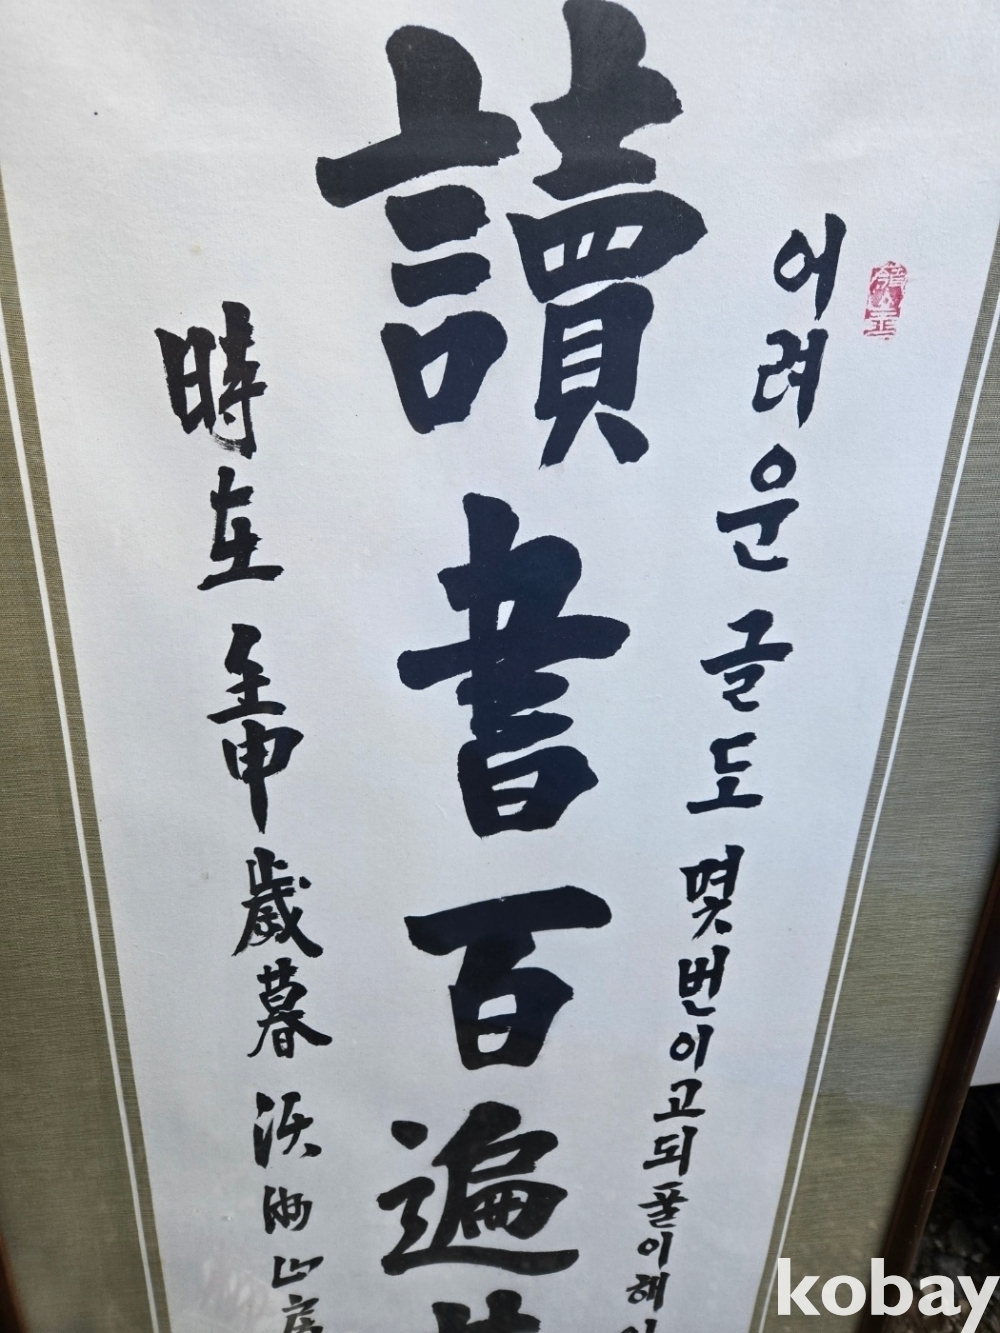 어려운 글도 몇번이고 되풀이해
讀書百遍
時在壬申歲暮 沃洲山房
kobay